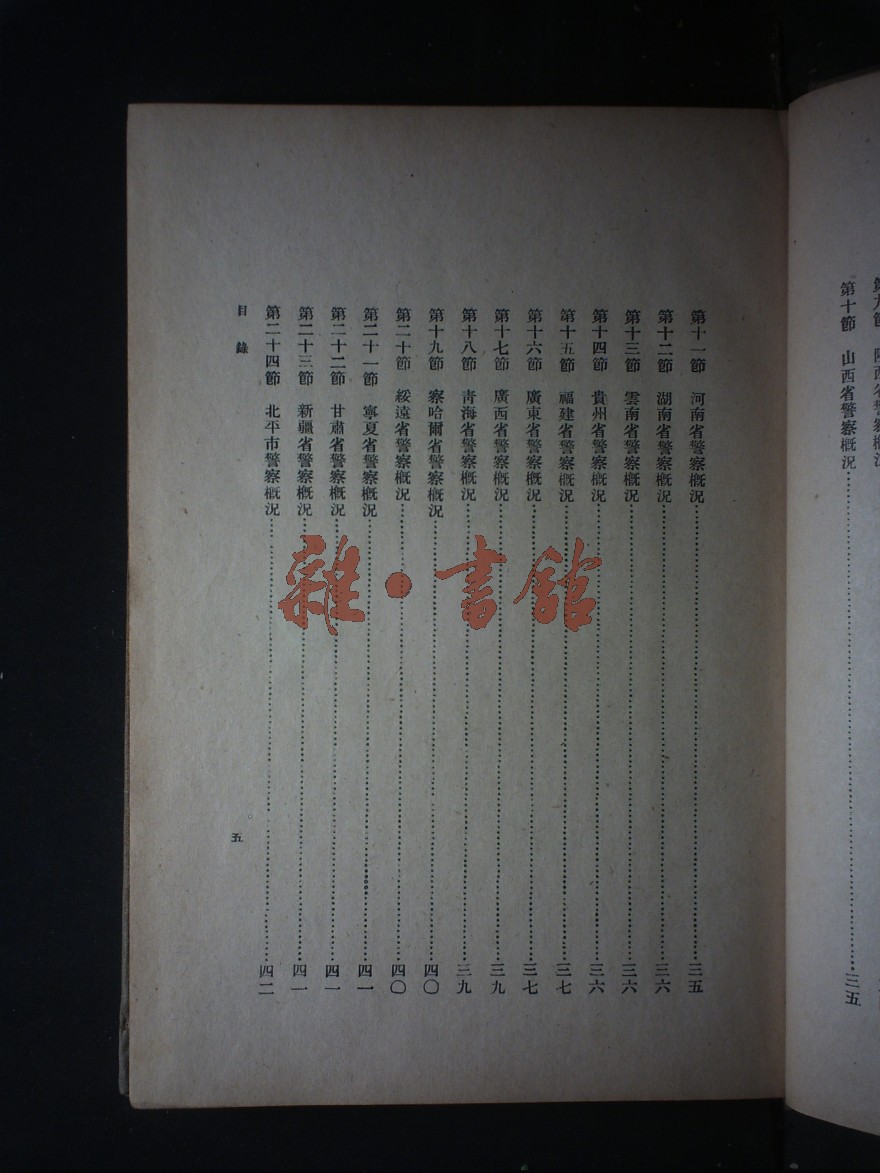 第十節　山西省警察概況……………………三五
第十一節　河南省警察概況……………………三五
第十二節　湖南省警察概況……………………三六
第十三節　雲南省警察概況……………………三六
第十四節　貴州省警察概況……………………三六
第十五節　福建省警察概況……………………三七
第十六節　廣東省警察概況……………………三七
第十七節　廣西省警察概況……………………三九
第十八節　青海省警察概況……………………三九
第十九節　察哈爾省警察概況……………………四〇
第二十節　綏遠省警察概況……………………四〇
第二十一節　寧夏省警察概況……………………四一
第二十二節　甘肅省警察概況……………………四一
第二十三節　新疆省警察概況……………………四一
第二十四節　北平市警察概況……………………四二
目錄
五
雜・書館